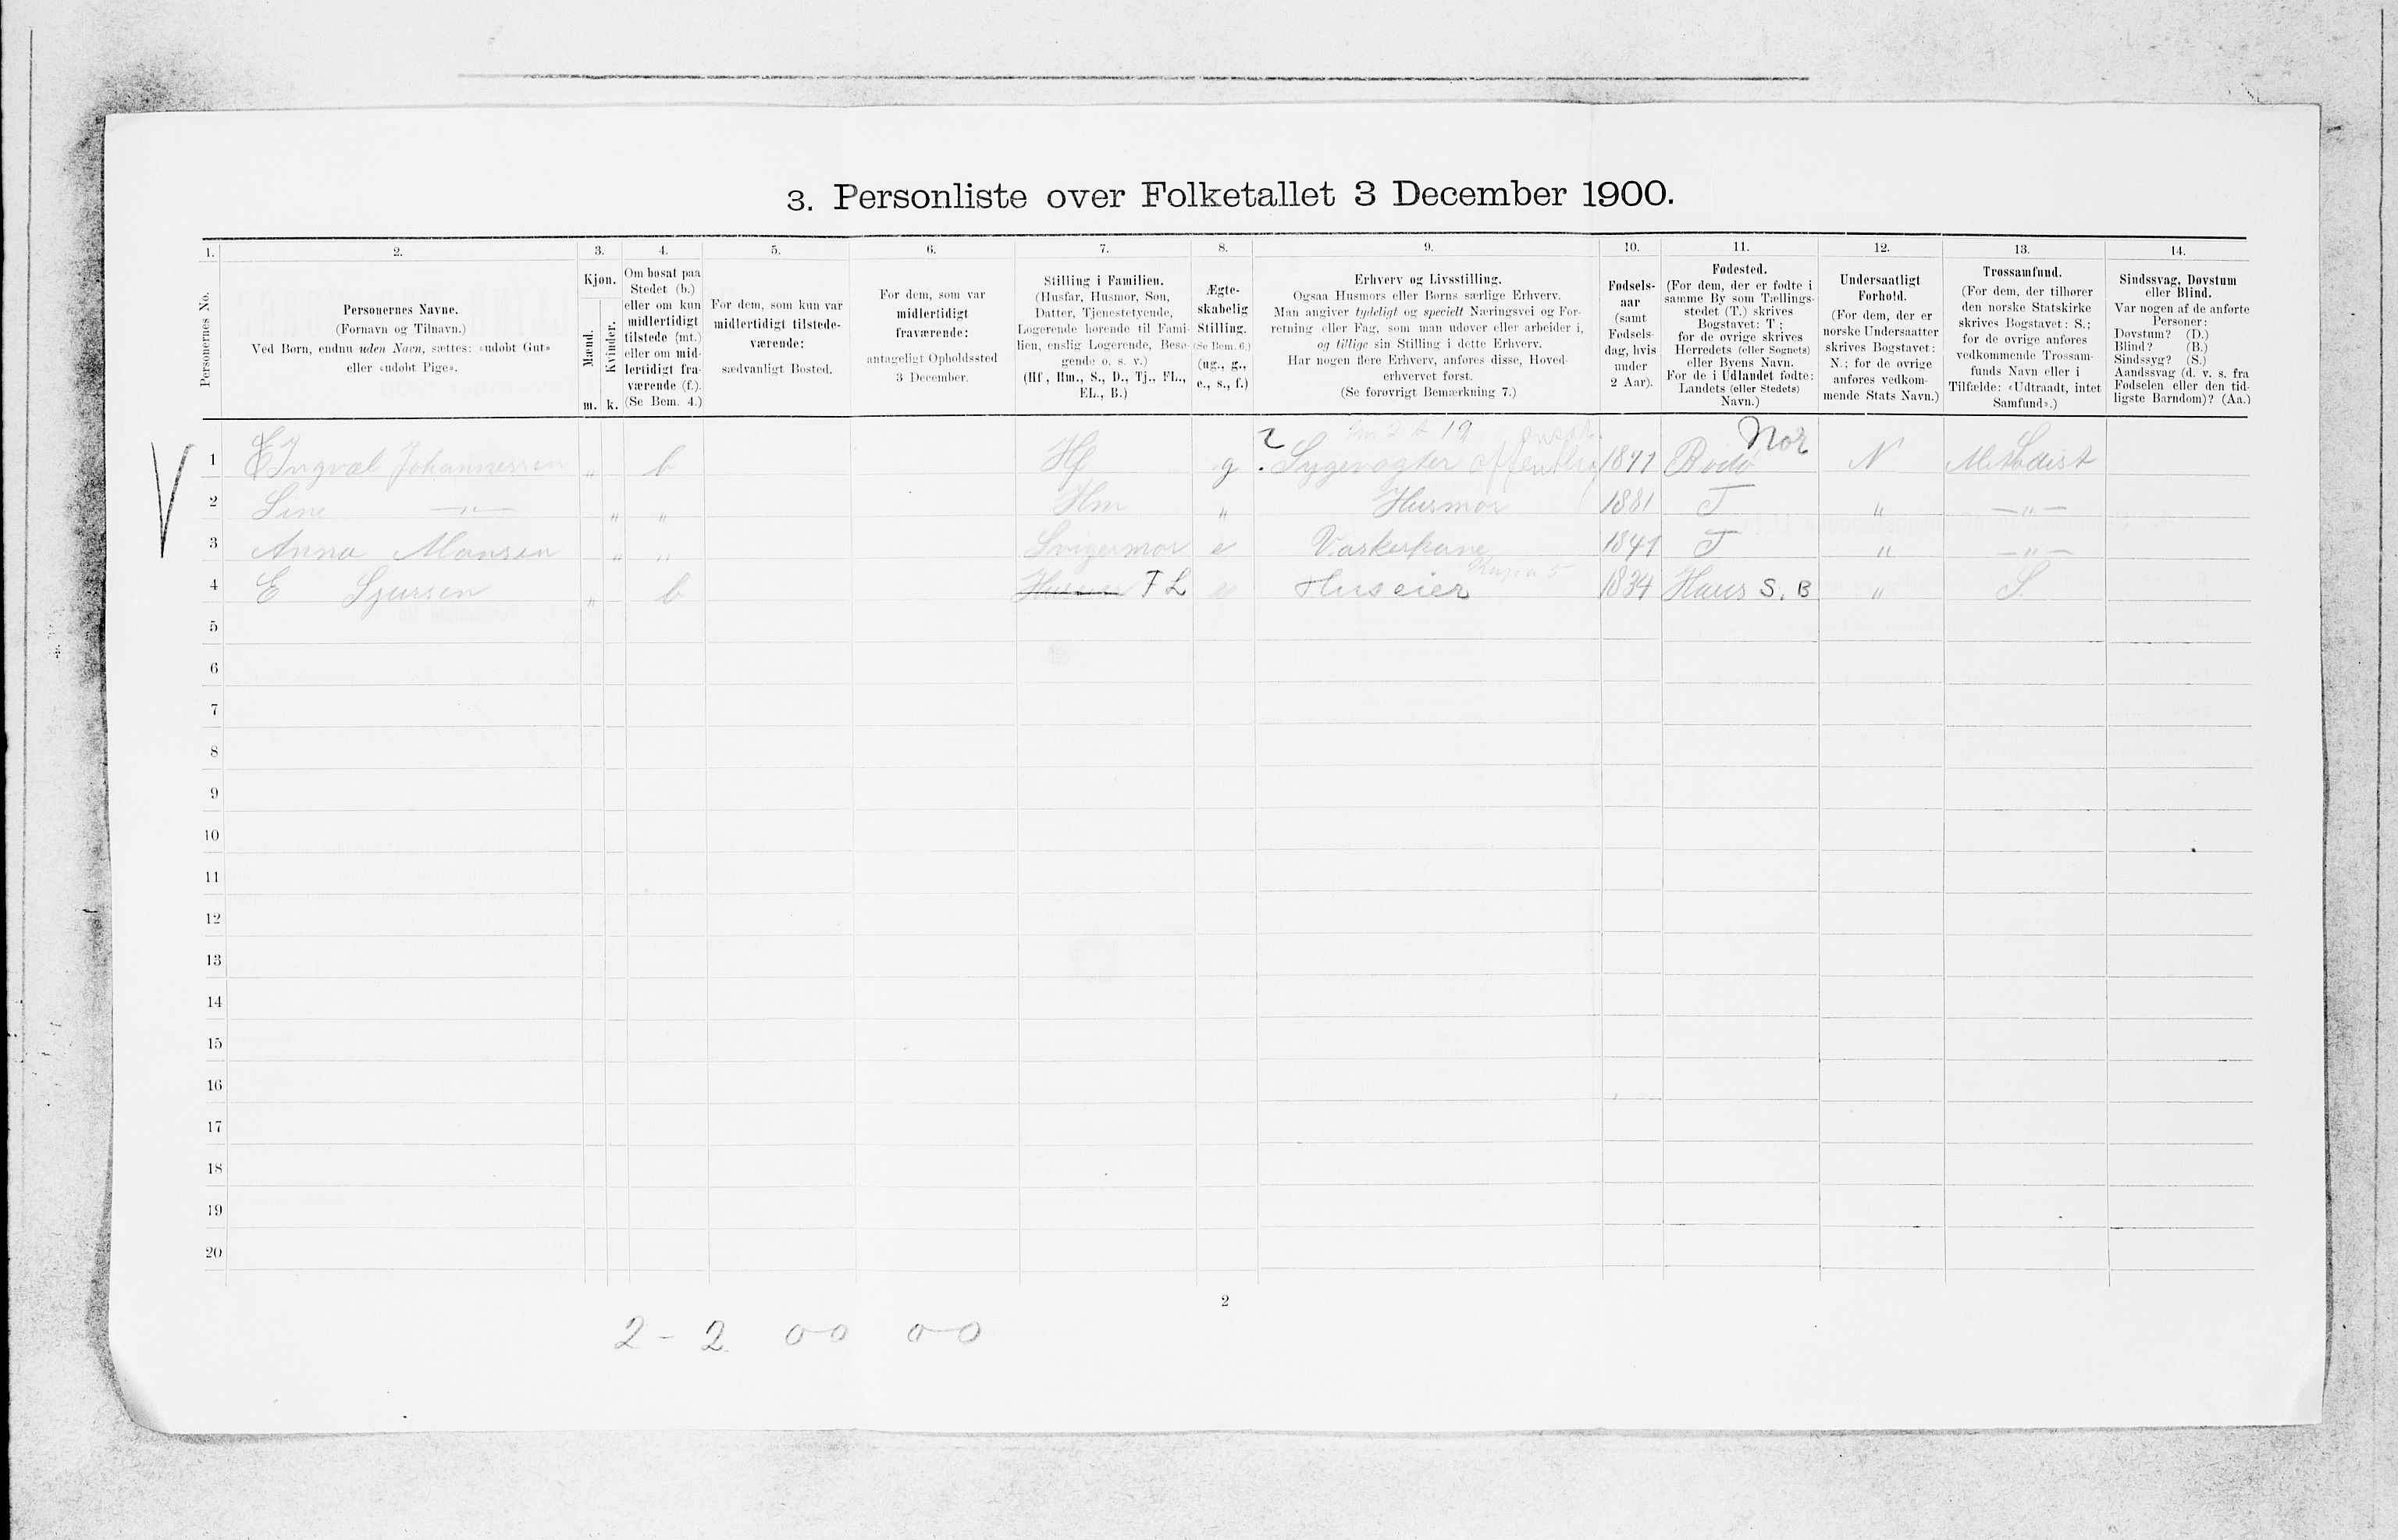 3. Personliste over Folketallet 3 December 1900.
1. 2. 3. 4. 5. 6. 7. 8. 9. 10. 11. 12. 13. 14.
Personernes No.
Personernes Navne.
(Fornavn og Tilnavn.)
Ved Børn, endnu uden Navn, sættes: «udøbt Gut»
eller «udøbt Pige».
Kjøn.
Mænd.
Kvinder.
m. k.
Om bosat paa
Stedet (b.)
eller om kun
midlertidigt
tilstede (mt.)
eller om mid-
lertidigt fra-
værende (f.).
(Se Bem. 4.)
For dem, som kun var
midlertidigt tilstede-
værende:
sædvanligt Bosted.
For dem, som var
midlertidigt
fraværende:
antageligt Opholdssted
3 December.
Stilling i Familien.
(Husfar, Husmor, Søn,
Datter, Tjenestetyende,
Logerende hørende til Fami-
lien, enslig Logerende, Besø-
gende o. s. v.)
(Hf, Hm., S., D., Tj., FL.,
EL., B.)
Ægte-
skabelig
Stilling.
(Se Bem. 6.)
(ug., g.,
e., s., f.)
Erhverv og Livsstilling.
Ogsaa Husmors eller Børns særlige Erhverv.
Man angiver tydeligt og specielt Næringsvei og For-
retning eller Fag, som man udøver eller arbeider i,
og tillige sin Stilling i dette Erhverv.
Har nogen flere Erhverv, anføres disse, Hoved-
erhvervet først.
(Se forøvrigt Bemærkning 7.)
Fødsels-
aar
(samt
Fødsels-
dag, hvis
under
2 Aar).
Fødested.
(For dem, der er fødte i
samme By som Tællings-
stedet (T.) skrives
Bogstavet: T;
for de øvrige skrives
Herredets (eller Sognets)
eller Byens Navn.
For de i Udlandet fødte:
Landets (eller Stedets)
Navn.)
Undersaatligt
Forhold.
(For dem, der er
norske Undersaatter
skrives Bogstavet:
N.; for de øvrige
anføres vedkom-
mende Stats Navn.)
Trossamfund.
(For dem, der tilhører
den norske Statskirke
skrives Bogstavet: S.;
for de øvrige anføres
vedkommende Trossam-
funds Navn eller i
Tilfælde: «Udtraadt, intet
Samfund».)
Sindssvag, Døvstum
eller Blind.
Var nogen af de anførte
Personer:
Døvstum? (D.)
Blind? (B.)
Sindssyg? (S.)
Aandssvag (d. v. s. fra
Fødselen eller den tid-
ligste Barndom)? (Aa.)
1 Ingvæl Johannessen „ b Hf g Sygevogter offentlig 1871 Bodø Nor N Methodist
2 Line —„— „ „ Hm „ Husmor 1881 T „ —„—
3 Anna Monsen „ „ Svigermor e Vaskerkone 1841 T „ —„—
4 E Sjursen „ b FL e Huseier 1834 Haus S. B „ S.
5
6
7
8
9
10
11
12
13
14
15
16
17
18
19
20
2
2 - 2 0-0 0-0